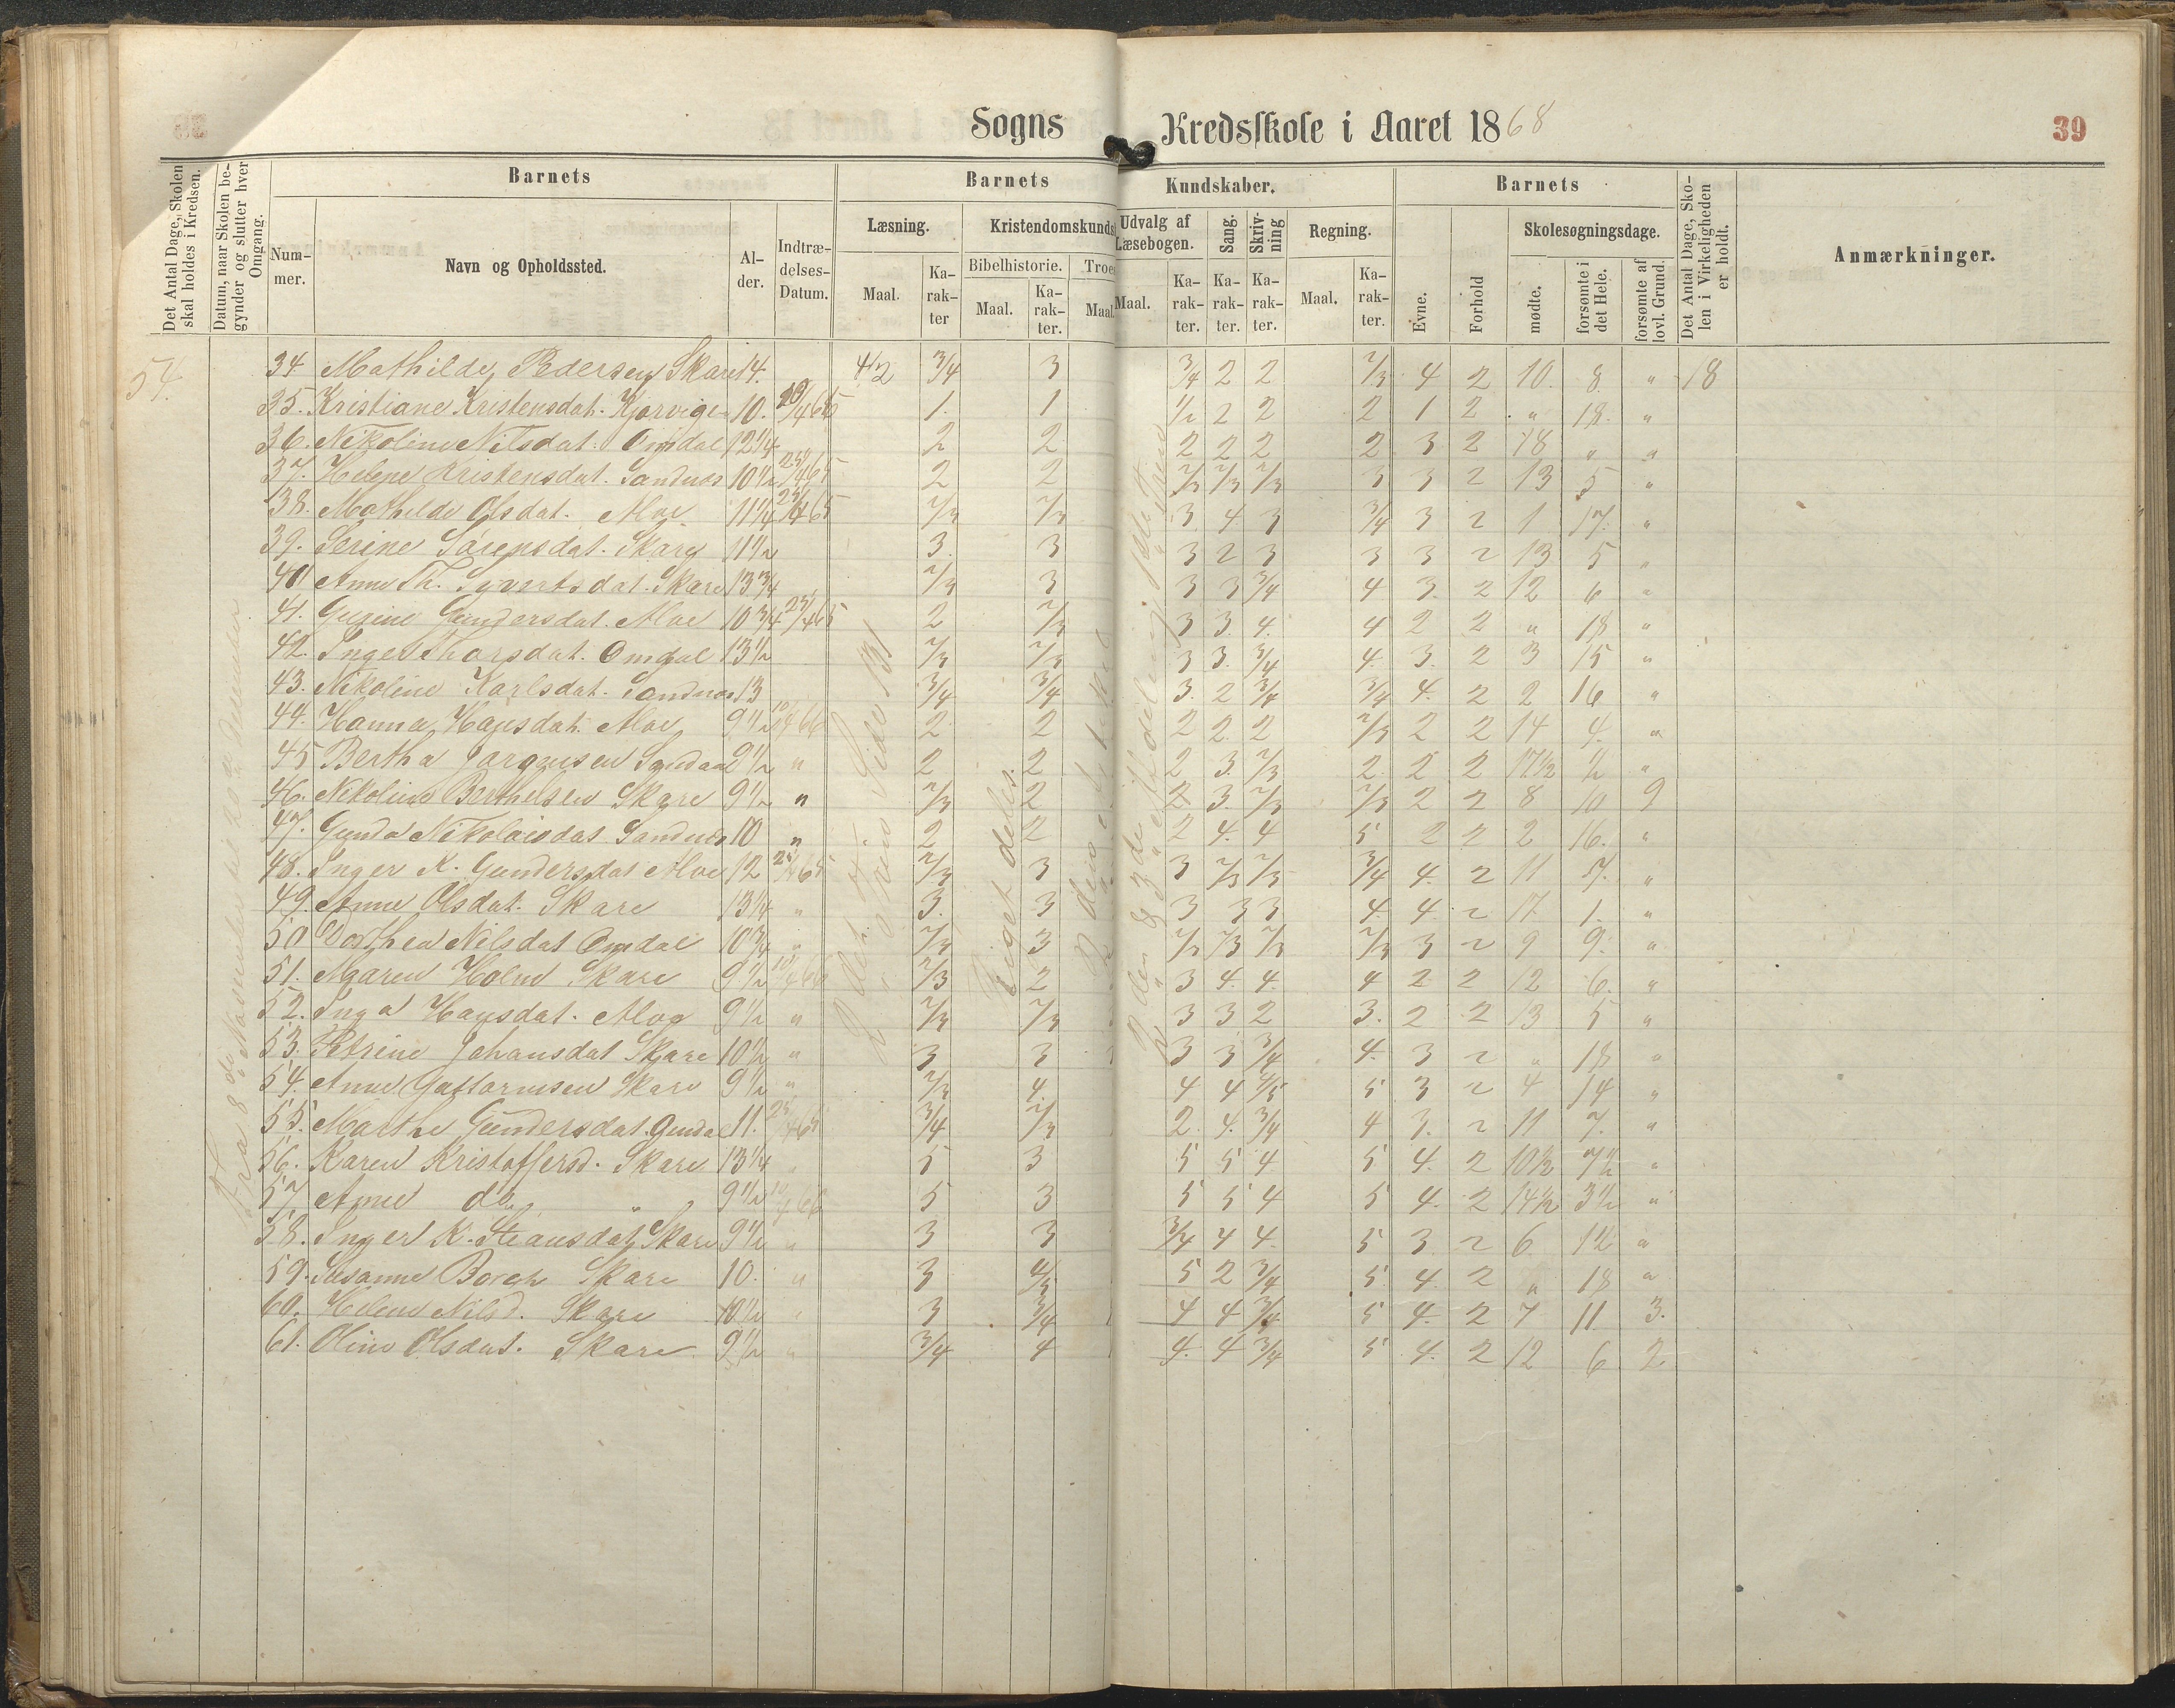 Sogns Kredsskole i Aaret 1868
39
Det Antal Dage, Skolen skal holdes i Kredsen.
Datum, naar Skolen begynder og slutter hver Omgang.
Barnets
Nummer.
Navn og Opholdssted.
Alder.
Indtrædelses-Datum.
Barnets Kundskaber.
Læsning.
Maal.
Karakter
Kristendomskunds
Bibelhistorie.
Maal.
Karakter.
Troe
Maal.
Udvalg af Læsebogen.
Maal.
Karakter.
Sang.
Karakter.
Skrivning
Karakter.
Regning.
Maal.
Karakter.
Barnets
Evne.
Forhold
Skolesøgningsdage.
mødte.
forsømte i det Hele.
forsømte af lovl. Grund.
Det Antal Dage, Skolen i Virkeligheden er holdt.
Anmærkninger.
54.
34. Mathilde Pedersen Skare 14. 4/2 3/4 3 3/4 2 2 2/3 4 2 10. 8 " 18
35. Kristiane Kristensdat. Kjorvigen 10. 1. 1 1/2 2 2 2 1 2 " 18. "
36. Nikoline Nilsdat. Omdal 12 1/4 2 2 2 2 2 2 3 2 18 " "
37. Helene Kristensdat. Sandnes 10 1/2 25/4 65 2 2 2/3 2/3 2/3 3 3 2 13 5 "
38. Mathilde Olsdat. Moe 11 1/4 25/4 65 2/3 2/3 3 4 3 3/4 3 2 1 17. "
39. Serine Sørensdat. Skare 11 1/2 3. 3 3 2 3 3 3 2 13 5 "
40 Anne Th. Syvertsdat. Skare 13 3/4 2/3 3 3 3 3/4 4 3. 2 12 6 "
41. Gurine Gundersdat. Moe 10 3/4 25/4 65 2 2/3 3 3. 4. 4 2 2 " 18 "
42. Inger Thorsdat. Omdal 13 1/2 2/3 2/3 3 3. 3/4 4. 3. 2 3 15 "
43. Nikoline Karlsdat. Sandnes 13 3/4 3/4 3. 2 3/4 3/4 4. 2 2 16 "
44. Hanna Hansdat. Moe 9 1/2 10/4 66 2 2 2 2 2 2/3 2 2 14 4. "
45 Bertha Jørgensen 9 1/2 " 2 2 2 3. 2/3 2. 2 2 17 1/2 1/2 "
46. Nikoline Berthelsen Skare 9 1/2 " 2/3 2 2 3. 2/3 2/3 2 2 8 10 9
47. Gunda Nikolaisdat. Sandnes 10 " 2 2 2 4. 4 5 2 2 2 16. "
48. Inger K. Gundersdat Moe 12 25/4 65 2/3 3 3 2/3 2/3 3/4 4. 2 11 7. "
49. Anne Olsdat. Skare 13 1/4 " 3. 3 3 3 3 4. 4 2 17. 1. "
50 Dorthea Nilsdat Omdal 10 3/4 " 2/3 3 2/3 2/3 2/3 2/3 3 2 9 9. "
51. Maren Holm Skare 9 1/2 10/4 66 2/3 2 3 4. 4. 4 2 2 12 6. "
52. Inga Hansdat. Moe 9 1/2 " 2/3 2/3 3 3 2 3. 2 2 13 5 "
53. Petrine Johansdat Skare 10 1/2 " 3 3 3 3 3/4 4. 3 2 " 18 "
54. Anne Guttormsen Skare 9 1/2 " 2/3 4. 4 4 4/5 5 3 2 4 14 "
55. Marthe Gundersdat. Omdal 11. 25/4 65 3/4 2/3 2. 4. 3/4 4 3. 2 11 7. "
56. Karen Kristoffersd. Skare 13 1/4 " 5 3 5 5 4 5 4. 2 10 1/2 7 1/2 "
57. Anne do " 9 1/2 10/4 66 5 3 5 5 4 5 4. 2 14 1/2 3 1/2 "
58. Inger K. Skare 9 1/2 " 3 3 3/4 4 4. 5 3 2 6. 12 "
59. Susanne Borch Skare 10. " 3 4/5 5 2 3/4 5. 4. 2 " 18 "
60. Helene Nilsd. Skare 10 1/2 " 3 3/4 4 4 3/4 5 4. 2 7 11 3.
61. Oline Olsdat. Skare 9 1/2 " 3/4 4 4. 4 3/4 5 4. 2 12 6 2
Fra 8de November til December
Side 131
Riget deles.
2den & 3de Afdeling